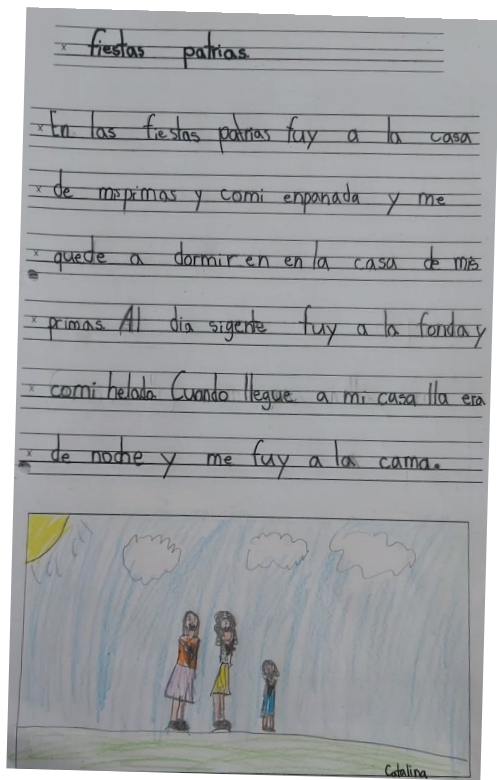 fiestas patrias.
En las fiestas patrias fuy a la casa
de mis primas y comi enpanada y me
quede a dormir en en la casa de mis
primas. Al dia sigente fuy a la fonda y
comi helado. Cuando llegue a mi casa lla era
de noche y me fuy a la cama.
Catalina